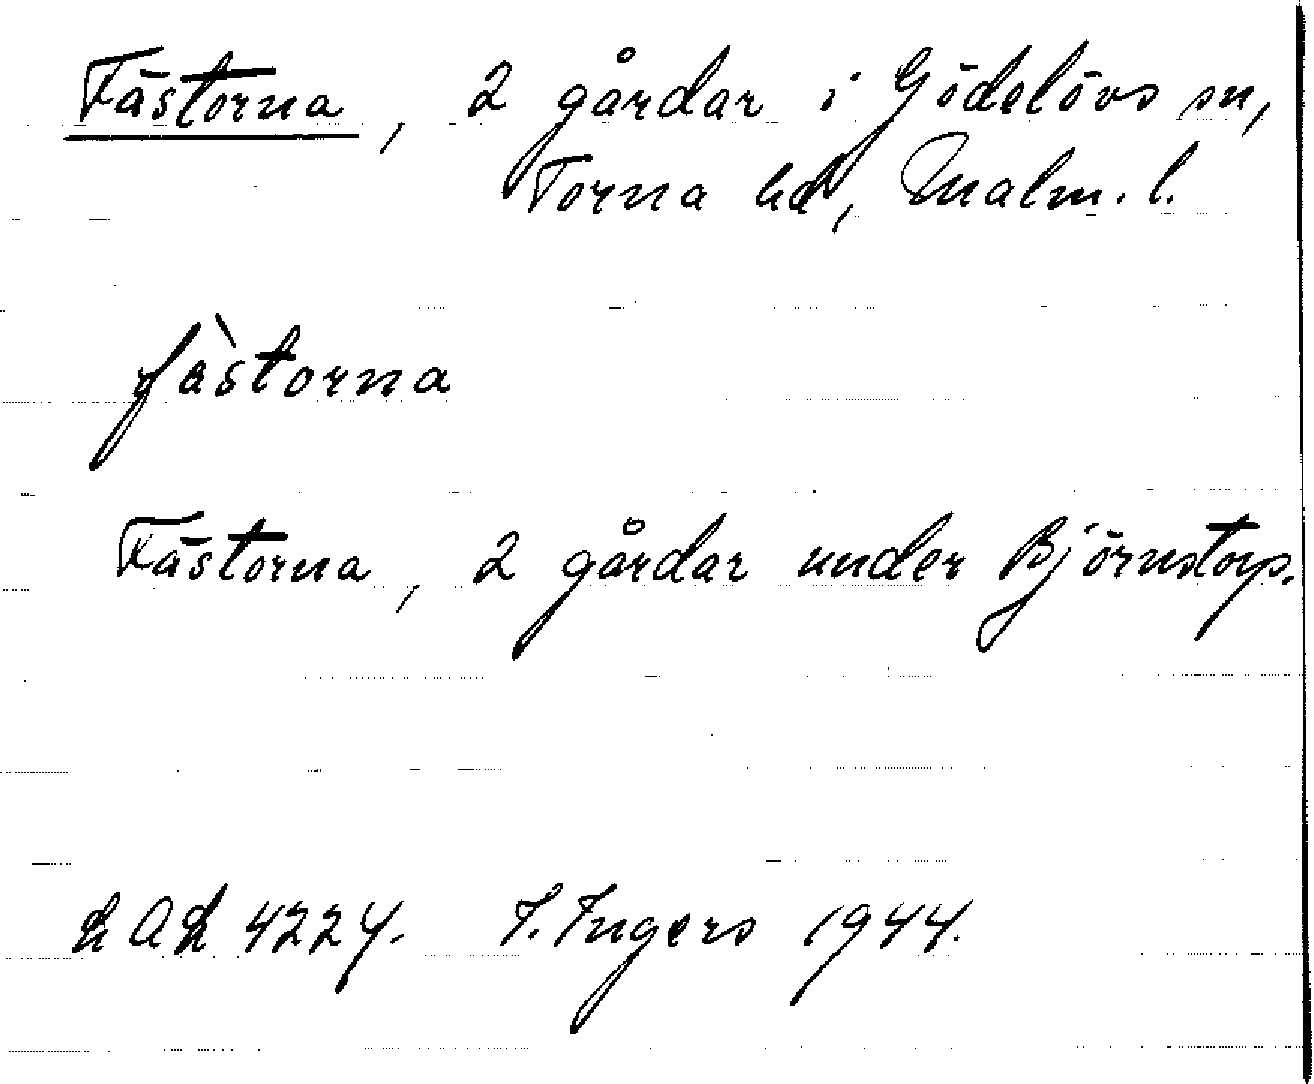 Fästorna, 2 gårdar i Gödelövs sn,
Torna hd, Malm. l.
fàstorna
Fästorna, 2 gårdar under Björnstorp.
LAL 4224. I. Ingers 1944.